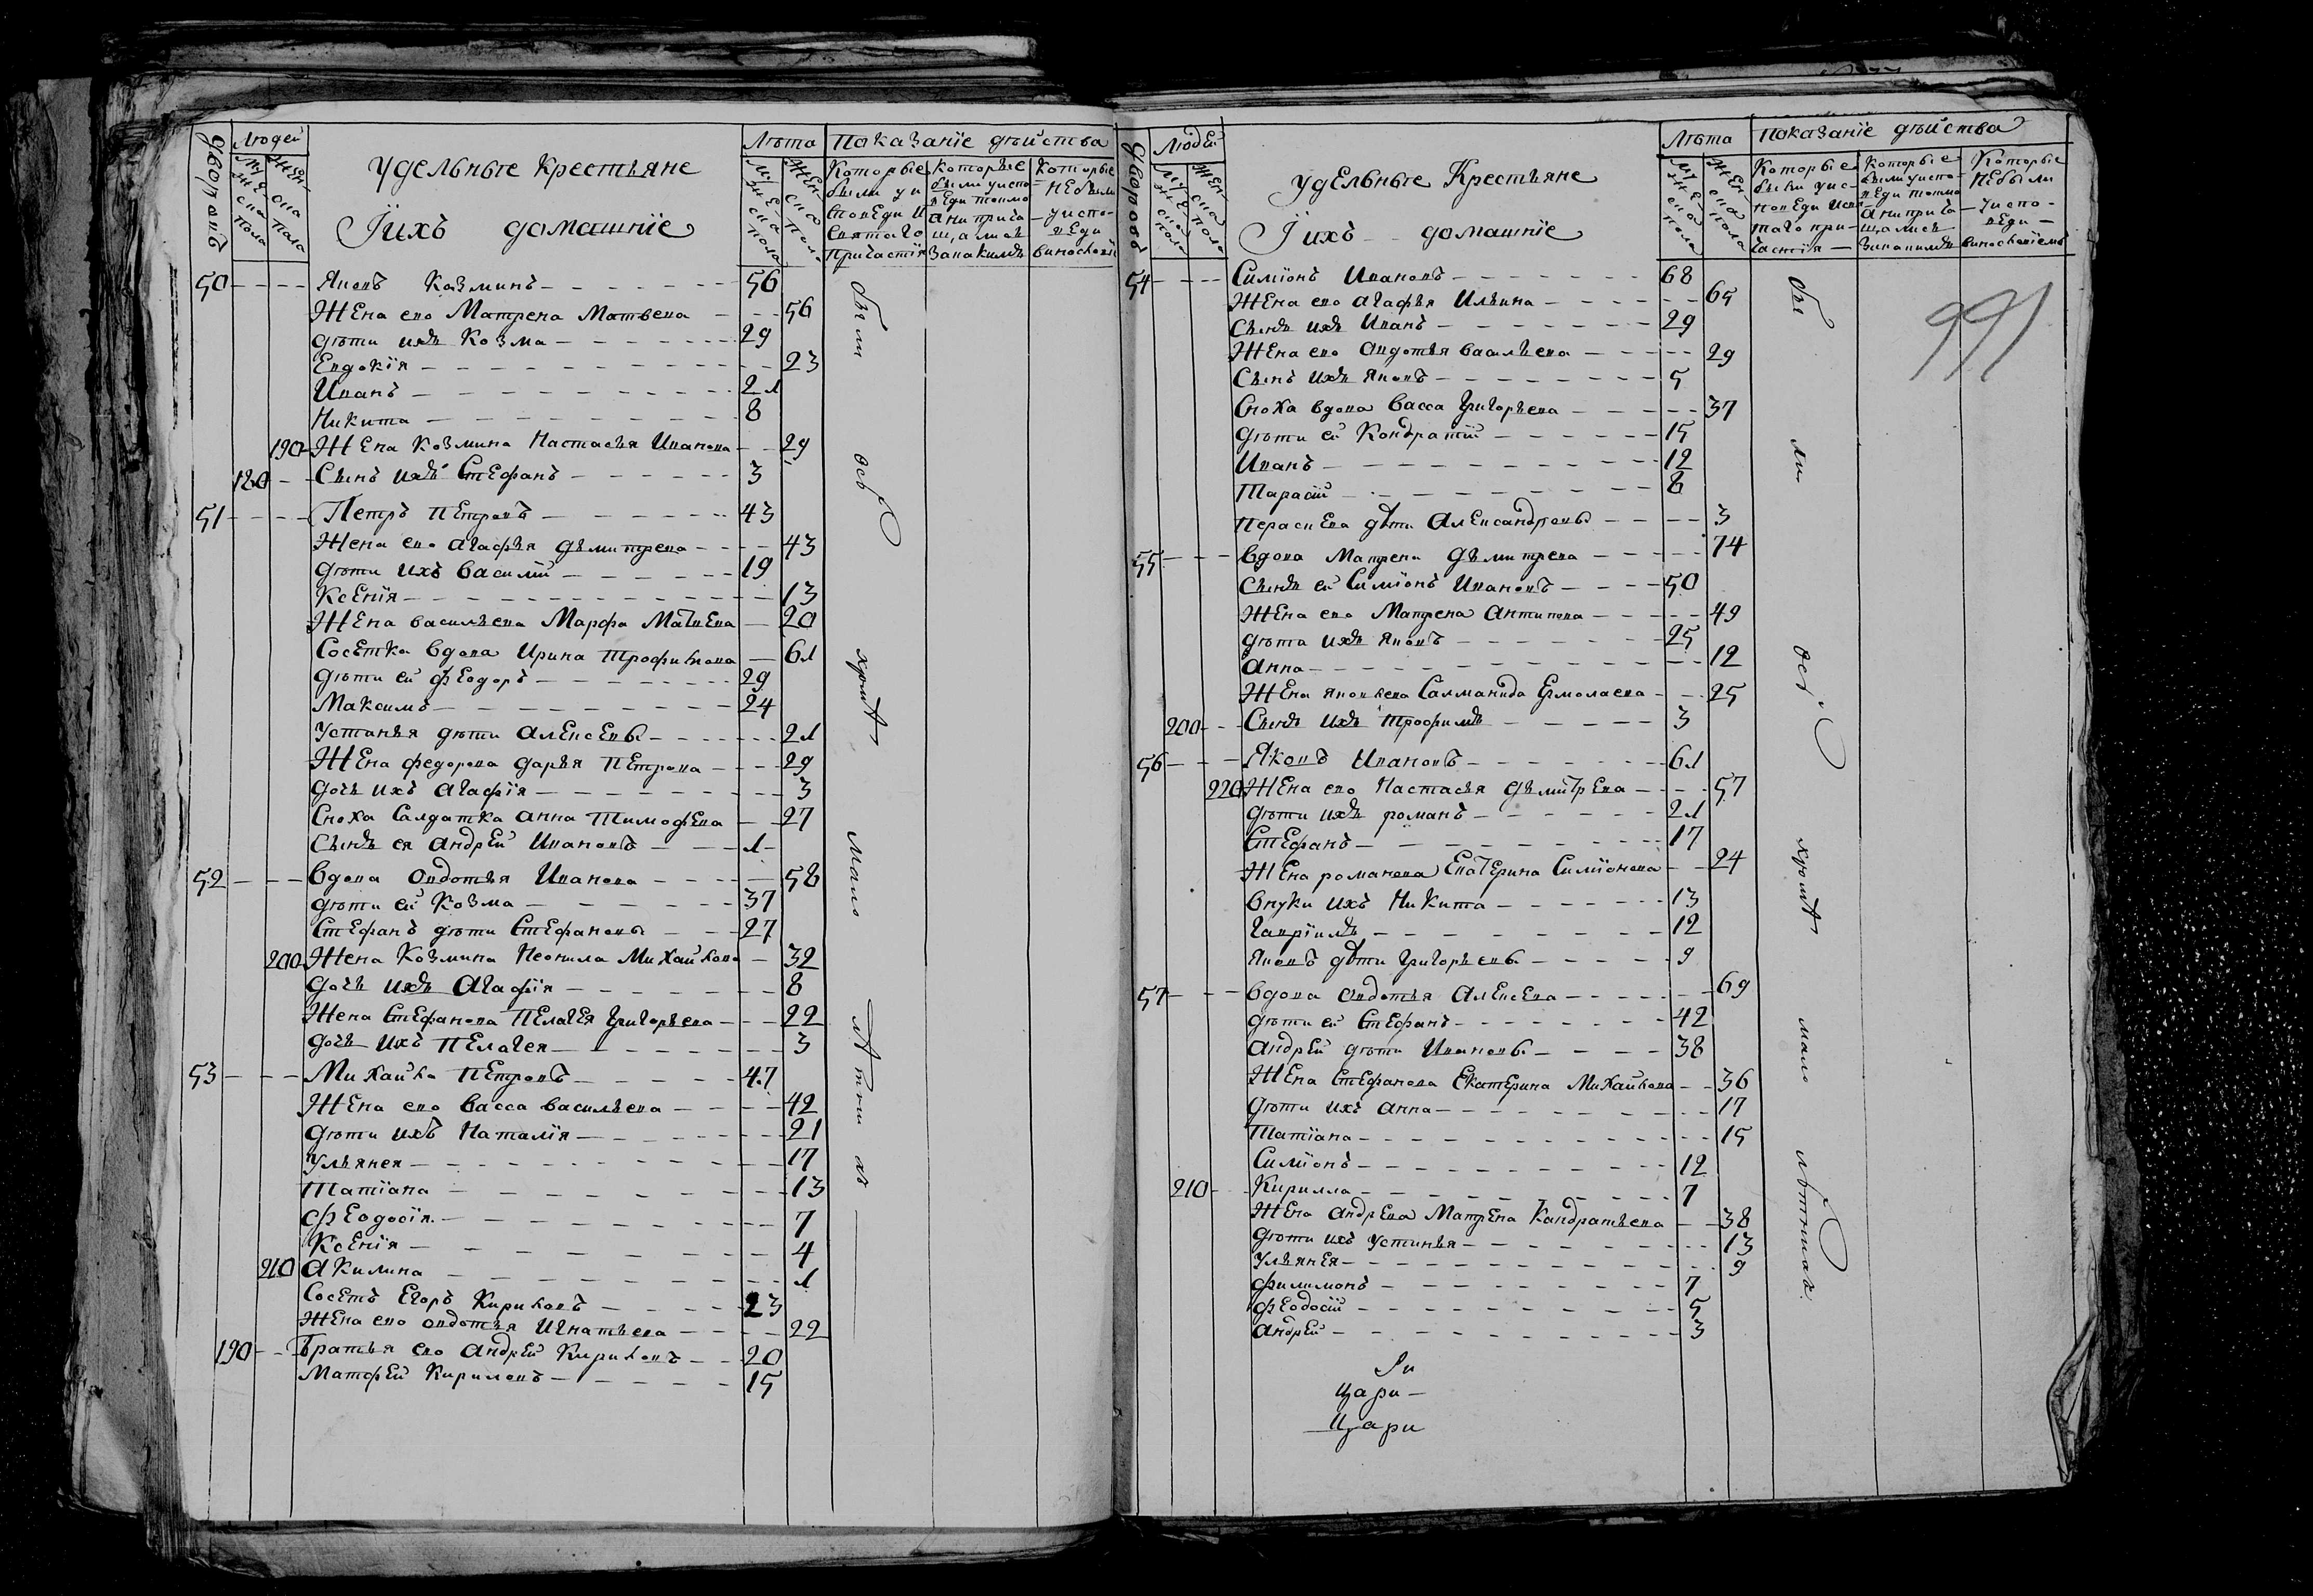 Дворовъ
Людей
Мужеска пола
Женска пола
Удельные Крестьяне
И ихъ домашнїе
Лѣта
Мужеска пола
Женска пола
Показанїе дѣйства
Которые были у исповѣди и святаго причастїя
Которые были у исповѣди токмо а не причащались за какимъ
Которые не были у исповѣди
50 Яковъ Козминъ 56
Жена ево Матрена Матвева 56
Дѣти ихъ Козма 29
Евдокїя 23
Иванъ 21
Никита 8
190 Жена Козмина Настасья Иванова 29
180 Сынъ ихъ Стефанъ 3
51 Петръ Петровъ 43
Жена ево Агафья Дьмитрева 43
Дѣти ихъ Василїй 19
Ксенїя 13
Жена Васильева Марфа Матвева 20
Соседка вдова Ирина Трофимова 61
Дѣти ей Феодоръ 29
Максимъ 24
Устинья дѣти Алексевы 21
Жена Федорова Дарья Петрова 29
Дочь ихъ Агафїя 3
Сноха Салдатка Анна Тимофева 27
Сынъ ея Андрей Ивановъ 1
52 Вдова Овдотья Иванова 58
Дѣти ей Козма 37
Стефанъ дѣти Стефановы 27
200 Жена Козмина Неонила Михайлова 32
Дочь ихъ Агафїя 8
Жена Стефанова Пелагея Григорьева 22
Дочь ихъ Пелагея 3
53 Михайла Петровъ 47
Жена ево Васса Васильева 42
Дѣти ихъ Наталїя 21
Ульянея 17
Татїана 13
Феодосїя 7
Ксенїя 4
210 Акилина 1
Соседъ Егоръ Кириловъ 23
Жена ево Овдотья Игнатьева 22
190 Братья ево Андрей Кириловъ 20
Матфей Кириловъ 15
были всѣ кромѣ мало лѣтнихъ
Дворовъ
Людей
Мужеска пола
Женска пола
Удельные Крестьяне
И ихъ домашнїе
Лѣта
Мужеска пола
Женска пола
Показанїе дѣйства
Которые были у исповеди и святаго причастїя
Которые были у исповеди токмо а не причащались за какимъ
Которые не были у исповеди
991
54 Симїонъ Ивановъ 68
Жена ево Агафья Ильина 65
Сынъ ихъ Иванъ 29
Жена ево Авдотья Васильева 29
Сынъ ихъ Яковъ 5
Сноха вдова Васса Григорьева 37
Дѣти ей Кондратїй 15
Иванъ 12
Тарасїй 8
Параскева дѣти Александровы 3
55 Вдова Матрена Дьмитрева 74
Сынъ ей Симїонъ Ивановъ 50
Жена ево Матрена Антипова 49
Дѣти ихъ Яковъ 25
Анна 12
Жена Яковлева Саламанида Ермолаева 25
200 Сынъ ихъ Трофимъ 3
56 Яковъ Ивановъ 61
220 Жена ево Настасья Дьмитрева 57
Дѣти ихъ Романъ 21
Стефанъ 17
Жена Романова Екатерина Симїонова 24
Внуки ихъ Никита 13
Гаврїилъ 12
Яковъ дѣти Григорьевы 9
57 Вдова Овдотья Алексева 69
Дѣти ей Стефанъ 42
Андрей дѣти Ивановы 38
Жена Стефанова Екатерина Михайлова 36
Дѣти ихъ Анна 17
Татїана 15
Симїонъ 12
210 Кирилла 7
Жена Андрева Матрена Кандратьева 38
Дѣти ихъ Устинья 13
Ульянея 9
Филимонъ 7
Феодосїй 5
Андрей 3
были всѣ кромѣ мало лѣтнихъ
Цари
Цари